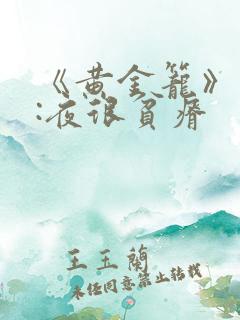 《黄金笼》
:夜很自癠
王玉蘭
未经同意禁止转载